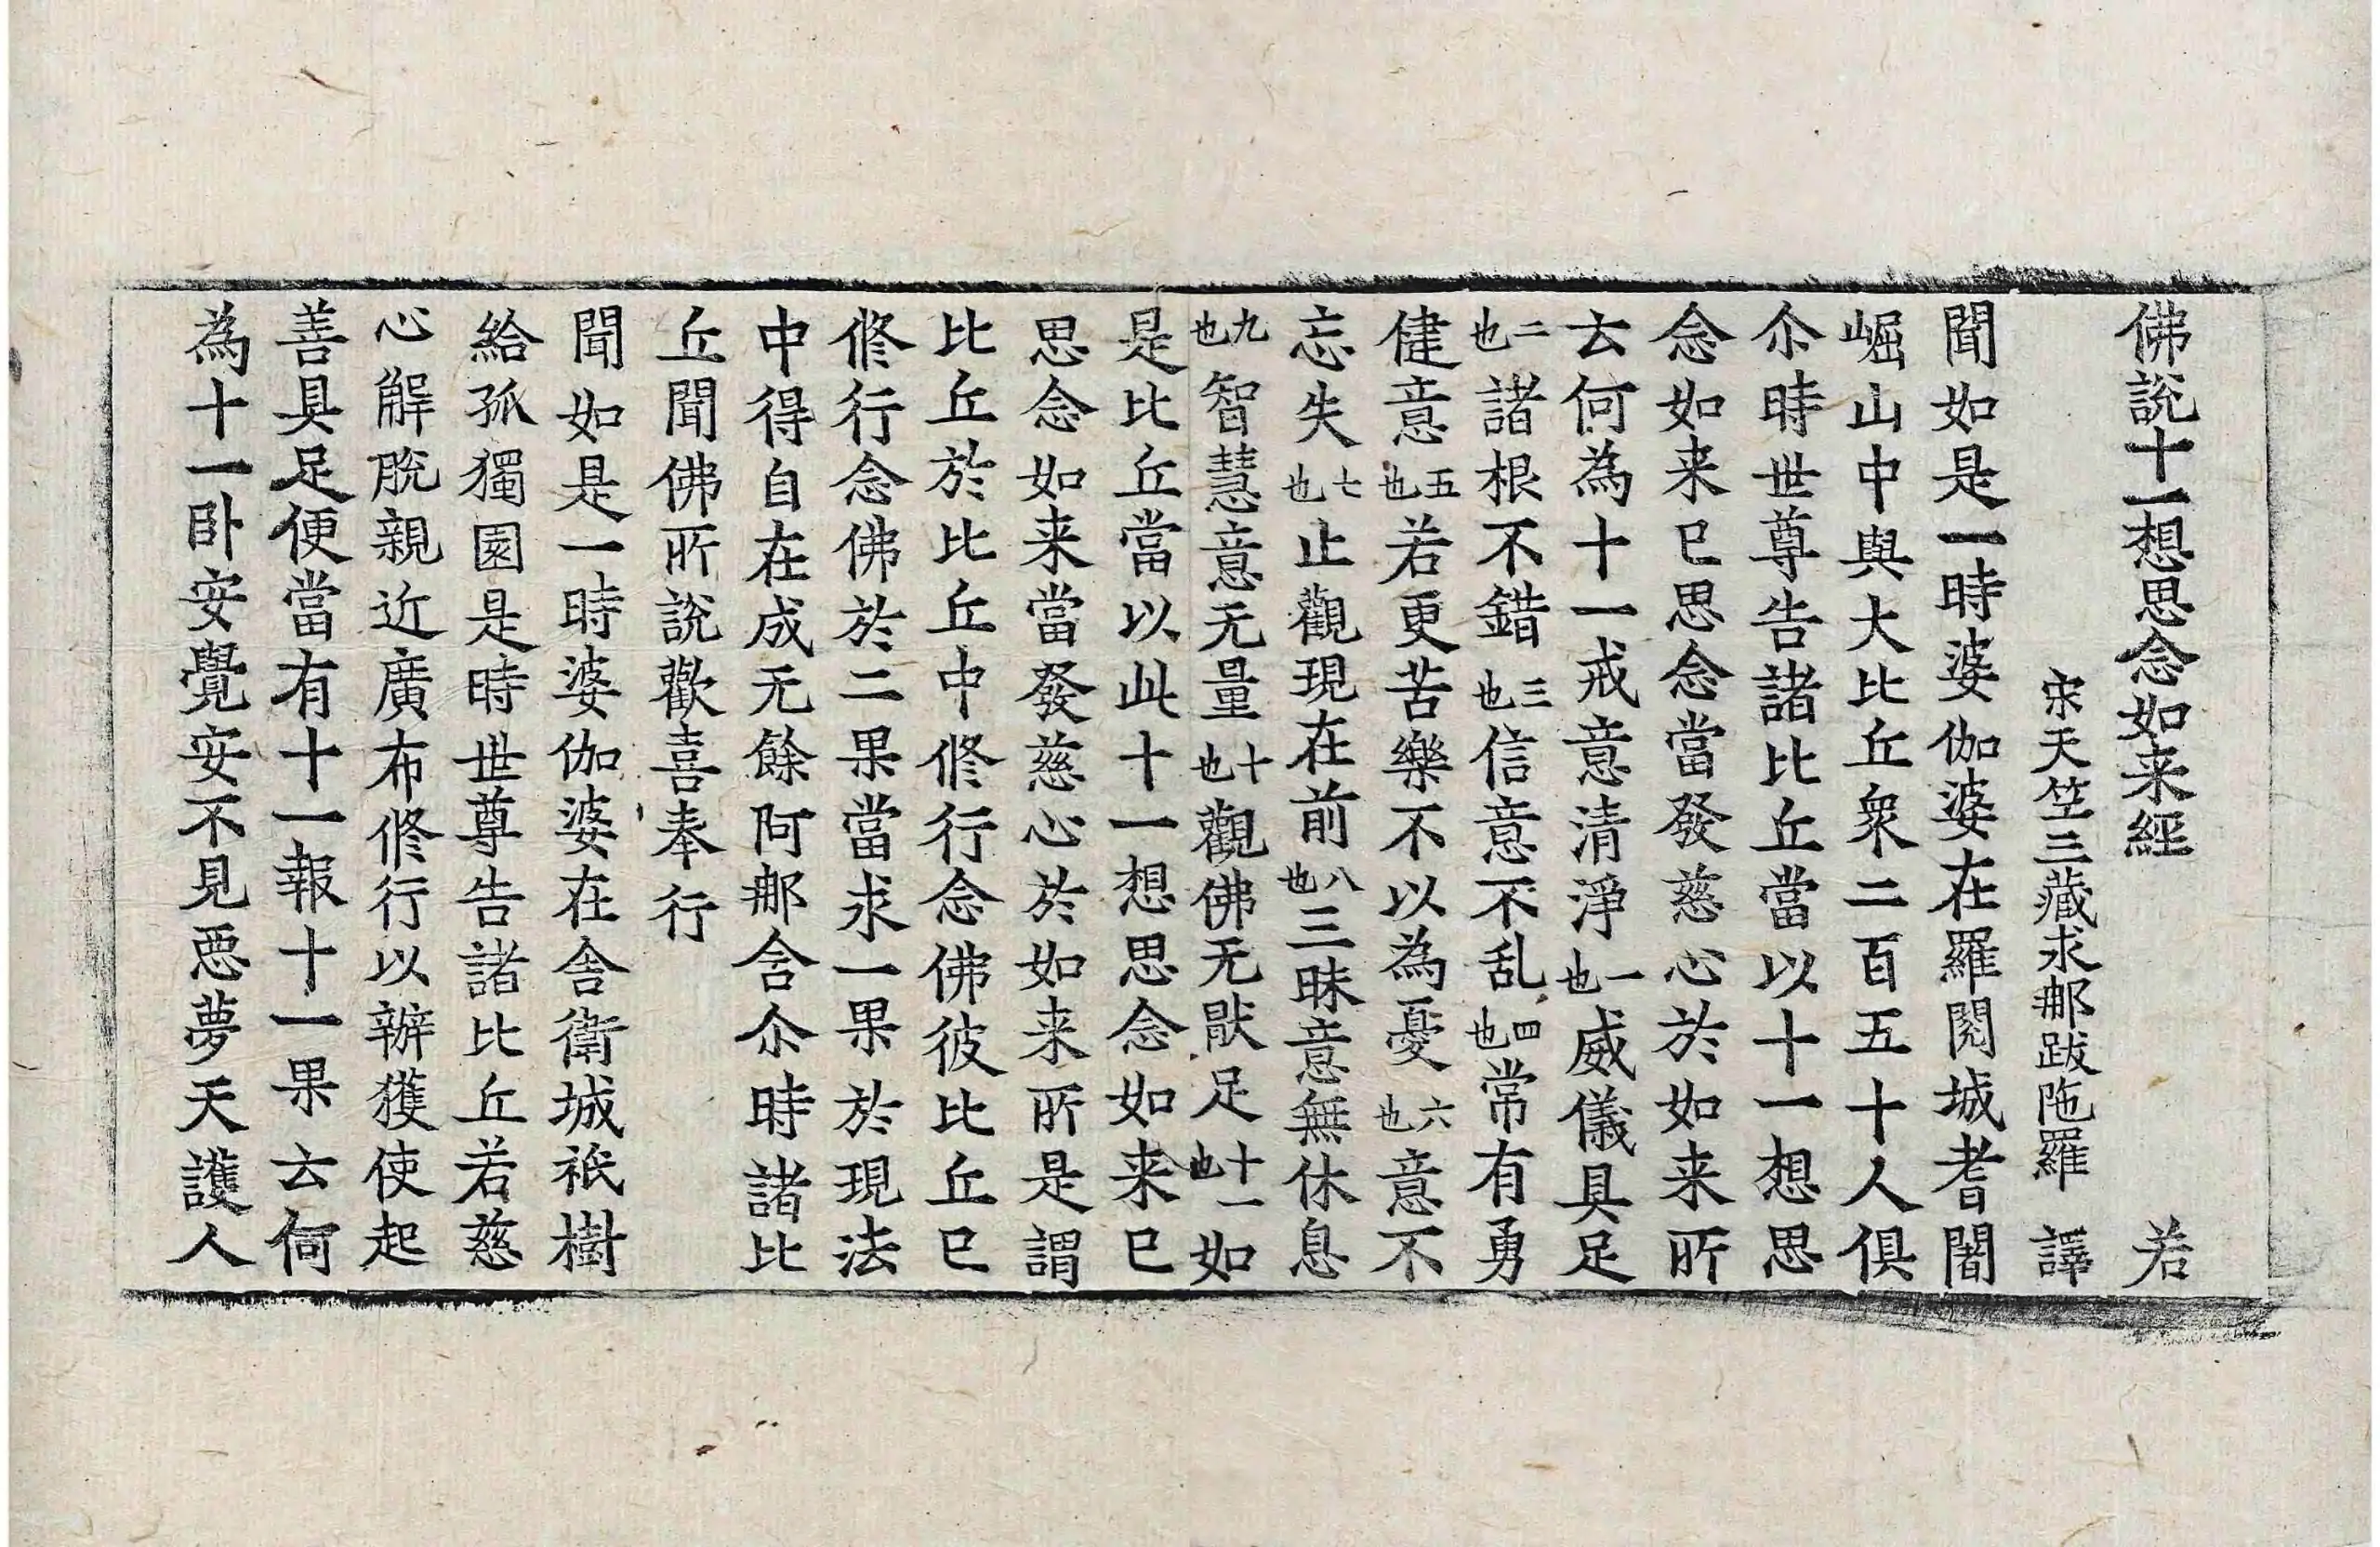 佛說十一想思念如来經　若
宋天竺三藏求那跋陁羅　譯
聞如是一時婆伽婆在羅閱城耆闍
崛山中與大比丘衆二百五十人俱
尒時世尊告諸比丘當以十一想思
念如来已思念當發慈心於如来所
云何為十一戒意清淨一也威儀具足
二也諸根不錯三也信意不乱四也常有勇
健意五也若更苦樂不以為憂六也意不
忘失七也止觀現在前八也三昧意無休息
九也智慧意无量十也觀佛无猒足十一也如
是比丘當以此十一想思念如来已
思念如来當發慈心於如来所是謂
比丘於比丘中修行念佛彼比丘已
修行念佛於二果當求一果於現法
中得自在成无餘阿那含尒時諸比
丘聞佛所說歡喜奉行
聞如是一時婆伽婆在舍衛城祇樹
給孤獨園是時世尊告諸比丘若慈
心解脫親近廣布修行以辦獲使起
善具足便當有十一報十一果云何
為十一卧安覺安不見惡夢天護人